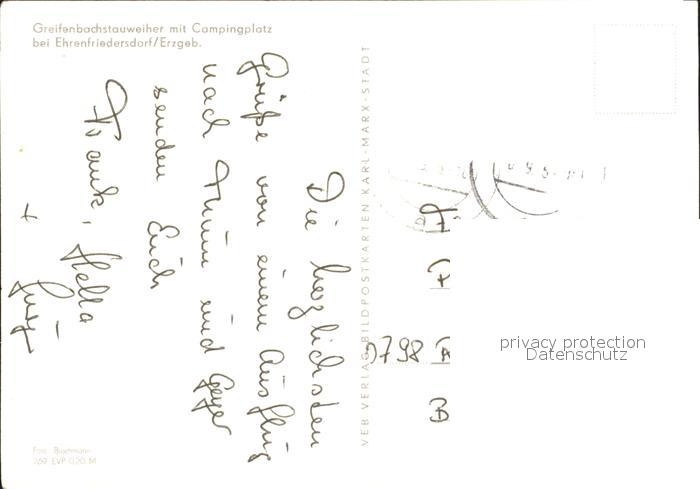 Greifenbachstauweiher mit Campingplatz
bei Ehrenfriedersdorf/Erzgeb.
Die herzlichsten
Grüße von einem Ausflug
nach Thum und Geyer
senden Euch
Frank, Hella
+
VEB VERLAG BILDPOSTKARTEN KARL-MARX-STADT
privacy protection
Datenschutz
Foto: Buschmann
EVP 0,20 M